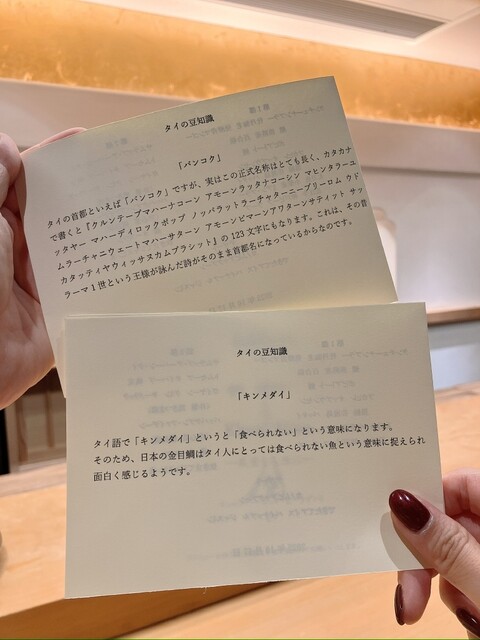 タイの豆知識
「バンコク」
タイの首都といえば「バンコク」ですが、実はこの正式名称はとても長く、カタカナ
で書くと『クルンテープマハーナコーン アモーンラッタナコーシン マヒンタラーユ
ッタヤー マハーディロックポップ ノッパラットラーチャタニーブリーロム ウド
ムラーチャニウェートマハーサターン アモーンピマーンアワターンサティット サッ
カタッティヤウィッサヌカムプラシット』の 123 文字にもなります。これは、その昔
ラーマ 1 世という王様が詠んだ詩がそのまま首都名になっているからなのです。
タイの豆知識
「キンメダイ」
タイ語で「キンメダイ」というと「食べられない」という意味になります。
そのため、日本の金目鯛はタイ人にとっては食べられない魚という意味に捉えられ
面白く感じるようです。